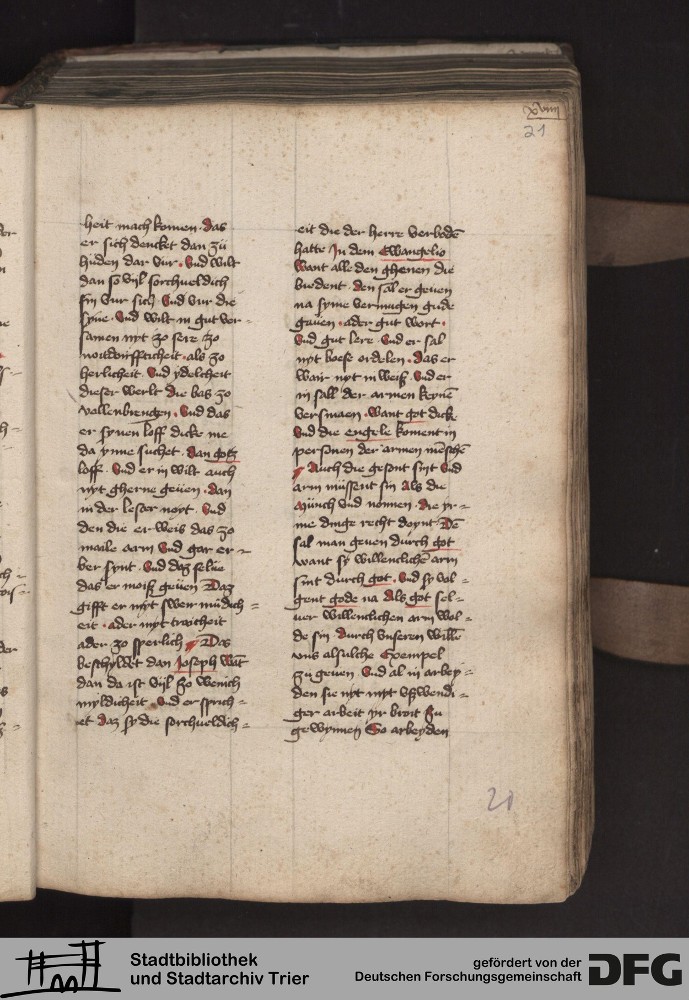 xviiij
21
heit mach komen · das
er sich dencket dan zü
hüden dar vur · Vnd wilt
dan so vijl sorchueldich
sin vur sich Vnd vur die
syne · Vnd wilt in gut ver-
samen nyt zo sere zo
noitdorfftichheit · als zo
herlicheit Vnd ydelcheit
dieser werlt die bas zo
vollenbrengen · Vnd das
er synen loff dicke me
da ynne suchet · dan gotz
loff · Vnd er in wilt auch
nyt gherne geuen · dan
in der lester noyt · Vnd
den die er weis das zo
maile arm Vnd gar er-
ber synt · Vnd daz selue
das er moiß geuen Daz
gifft er myt swermüdich=
eit · ader myt traicheit
ader zo sperlich Das
beschyldet dan Joseph wāt
dan da ist vijl zo wenich
myldicheit · Vnd er sprich=
et daz sy die sorchueldich=
eit die der herre verbedē
hatte Jn dem Ewangelio
Want alle den ghenen die
biedent · den sal er geuen
na syme vermugen gude
gauen · ader gut wort ·
Vnd gut lere · Vnd er sal
nyt boese ordelen · das er
wair nyt in weiß · Vnd er
in sall der armen keynē
versmaen · want got dick
Vnd die engele koment in
personen der armen mēschē
Auch die gesont sint Vnd
arm müssent sin Als die
münch Vnd nonnen · die yr-
me dinge recht doynt Dē
sal man geuen durch got
want sy willenclichē arm
sint durch got · Vnd sy vol=
gent gode na Als got sel=
uer willenclichen arm wol=
de sin · durch vnseren willē
vns alsulche Exempel
zu geuen · Vnd al in arbey-
den sie nyt myt vßwendi=
ger arbeit yr broit zu
gewynnen So arbeyden
20
Stadtbibliothek
und Stadtarchiv Trier
gefördert von der
Deutschen Forschungsgemeinschaft
DFG